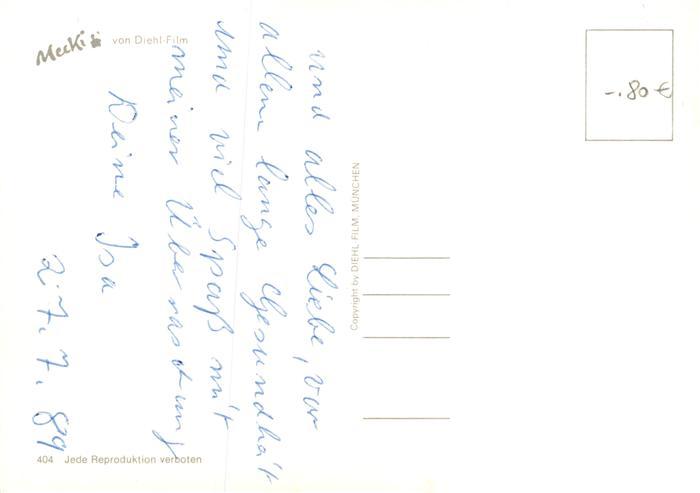 Mecki von Diehl-Film
und alles Liebe, vor
allem lange Gesundheit
und viel Spaß mit
meiner Überraschung
Deine Isa
27.7.89
-.80 €
Copyright by DIEHL-FILM, MÜNCHEN
404 Jede Reproduktion verboten